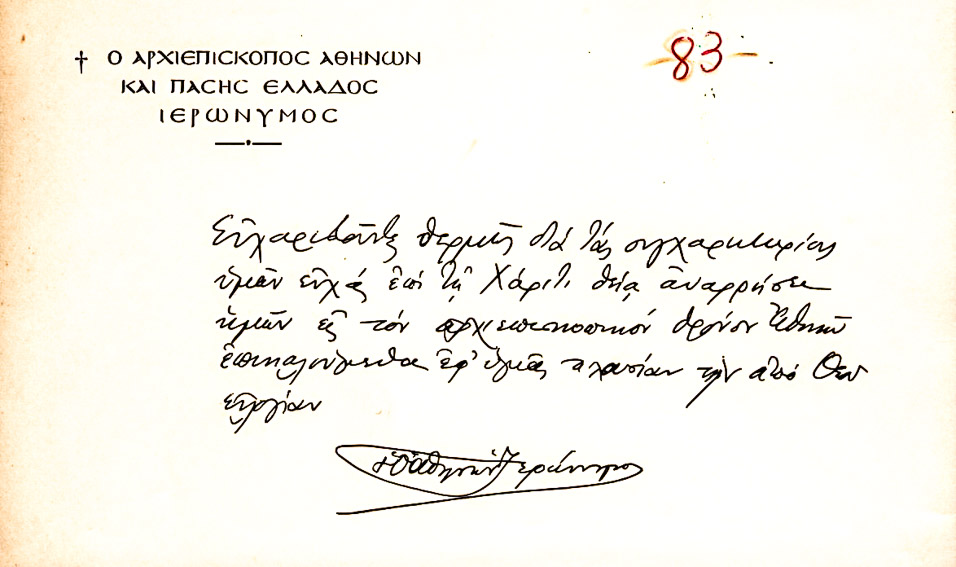 † Ο ΑΡΧΙΕΠΙΣΚΟΠΟΣ ΑΘΗΝΩΝ
ΚΑΙ ΠΑΣΗΣ ΕΛΛΑΔΟΣ
ΙΕΡΩΝΥΜΟΣ
-83-
Εὐχαριστοῦντες θερμῶς διά τάς συγχαρητηρίους
ὑμῶν εὐχάς ἐπί τῇ Χάριτι θείᾳ ἀναρρήσει
ἡμῶν εἰς τόν ἀρχιεπισκοπικόν θρόνον Ἀθηνῶν
ἐπικαλούμεθα ἐφ' ὑμᾶς πλουσίαν τήν ἀπό Θεοῦ
εὐλογίαν
† ὁ Ἀθηνῶν Ἱερώνυμος